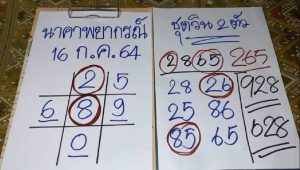 นาคาพยากรณ์
16 ก.ค. 64
2 5
6 8 9
0
ชุดวิน 2 ตัว
2865 265
28 26 928
25 86
85 65 628